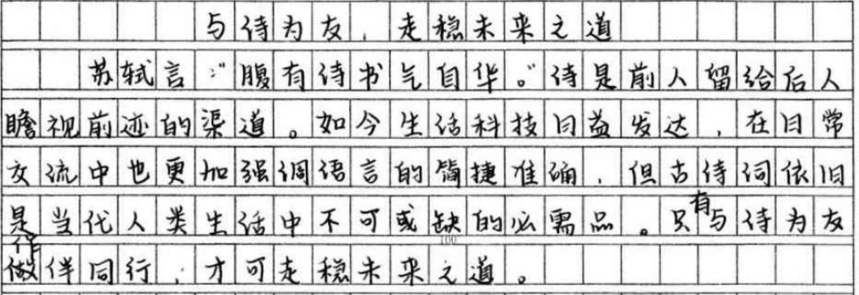 与诗为友，走稳未来之道
苏轼言："腹有诗书气自华。"诗是前人留给后人
瞻视前迹的渠道。如今生活科技日益发达，在日常
交流中也更加强调语言的简捷准确，但古诗词依旧
是当代人类生活中不可或缺的必需品。只有与诗为友
作伴同行，才可走稳未来之道。
100